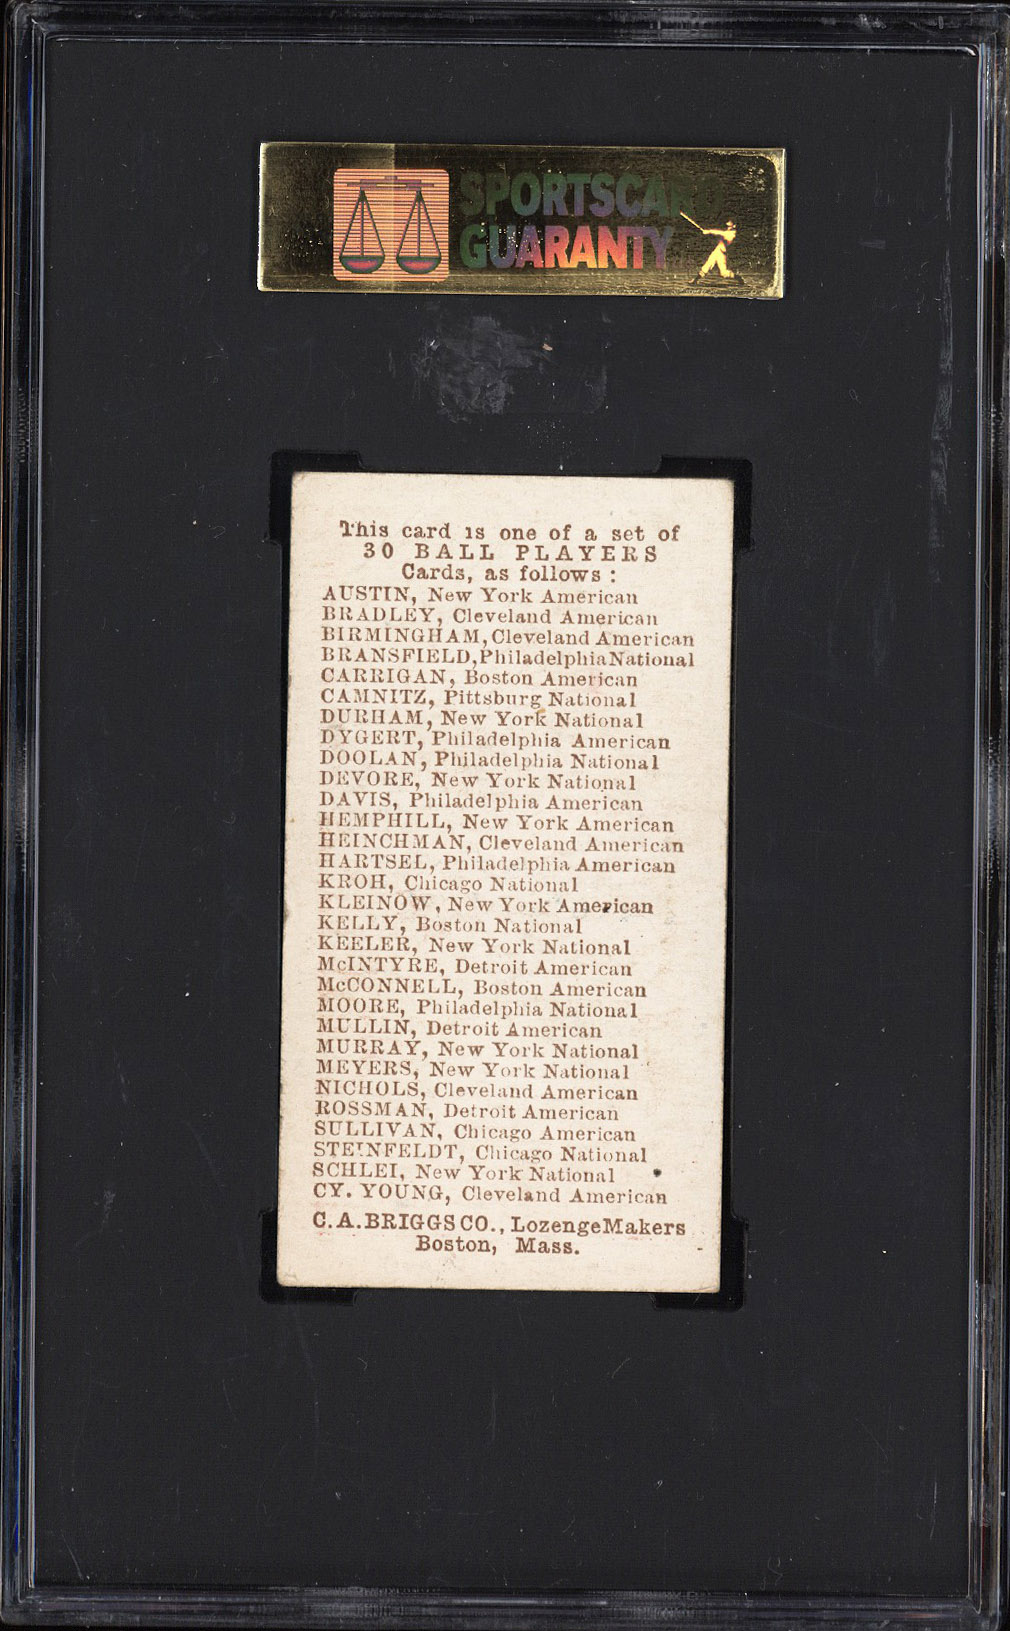 SPORTSCARD
GUARANTY
This card is one of a set of
30 BALL PLAYERS
Cards, as follows :
AUSTIN, New York American
BRADLEY, Cleveland American
BIRMINGHAM, Cleveland American
BRANSFIELD, Philadelphia National
CARRIGAN, Boston American
CAMNITZ, Pittsburg National
DURHAM, New York National
DYGERT, Philadelphia American
DOOLAN, Philadelphia National
DEVORE, New York National
DAVIS, Philadelphia American
HEMPHILL, New York American
HEINCHMAN, Cleveland American
HARTSEL, Philadelphia American
KROH, Chicago National
KLEINOW, New York American
KELLY, Boston National
KEELER, New York National
McINTYRE, Detroit American
McCONNELL, Boston American
MOORE, Philadelphia National
MULLIN, Detroit American
MURRAY, New York National
MEYERS, New York National
NICHOLS, Cleveland American
ROSSMAN, Detroit American
SULLIVAN, Chicago American
STEINFELDT, Chicago National
SCHLEI, New York National
CY. YOUNG, Cleveland American
C. A. BRIGGS CO., Lozenge Makers
Boston, Mass.